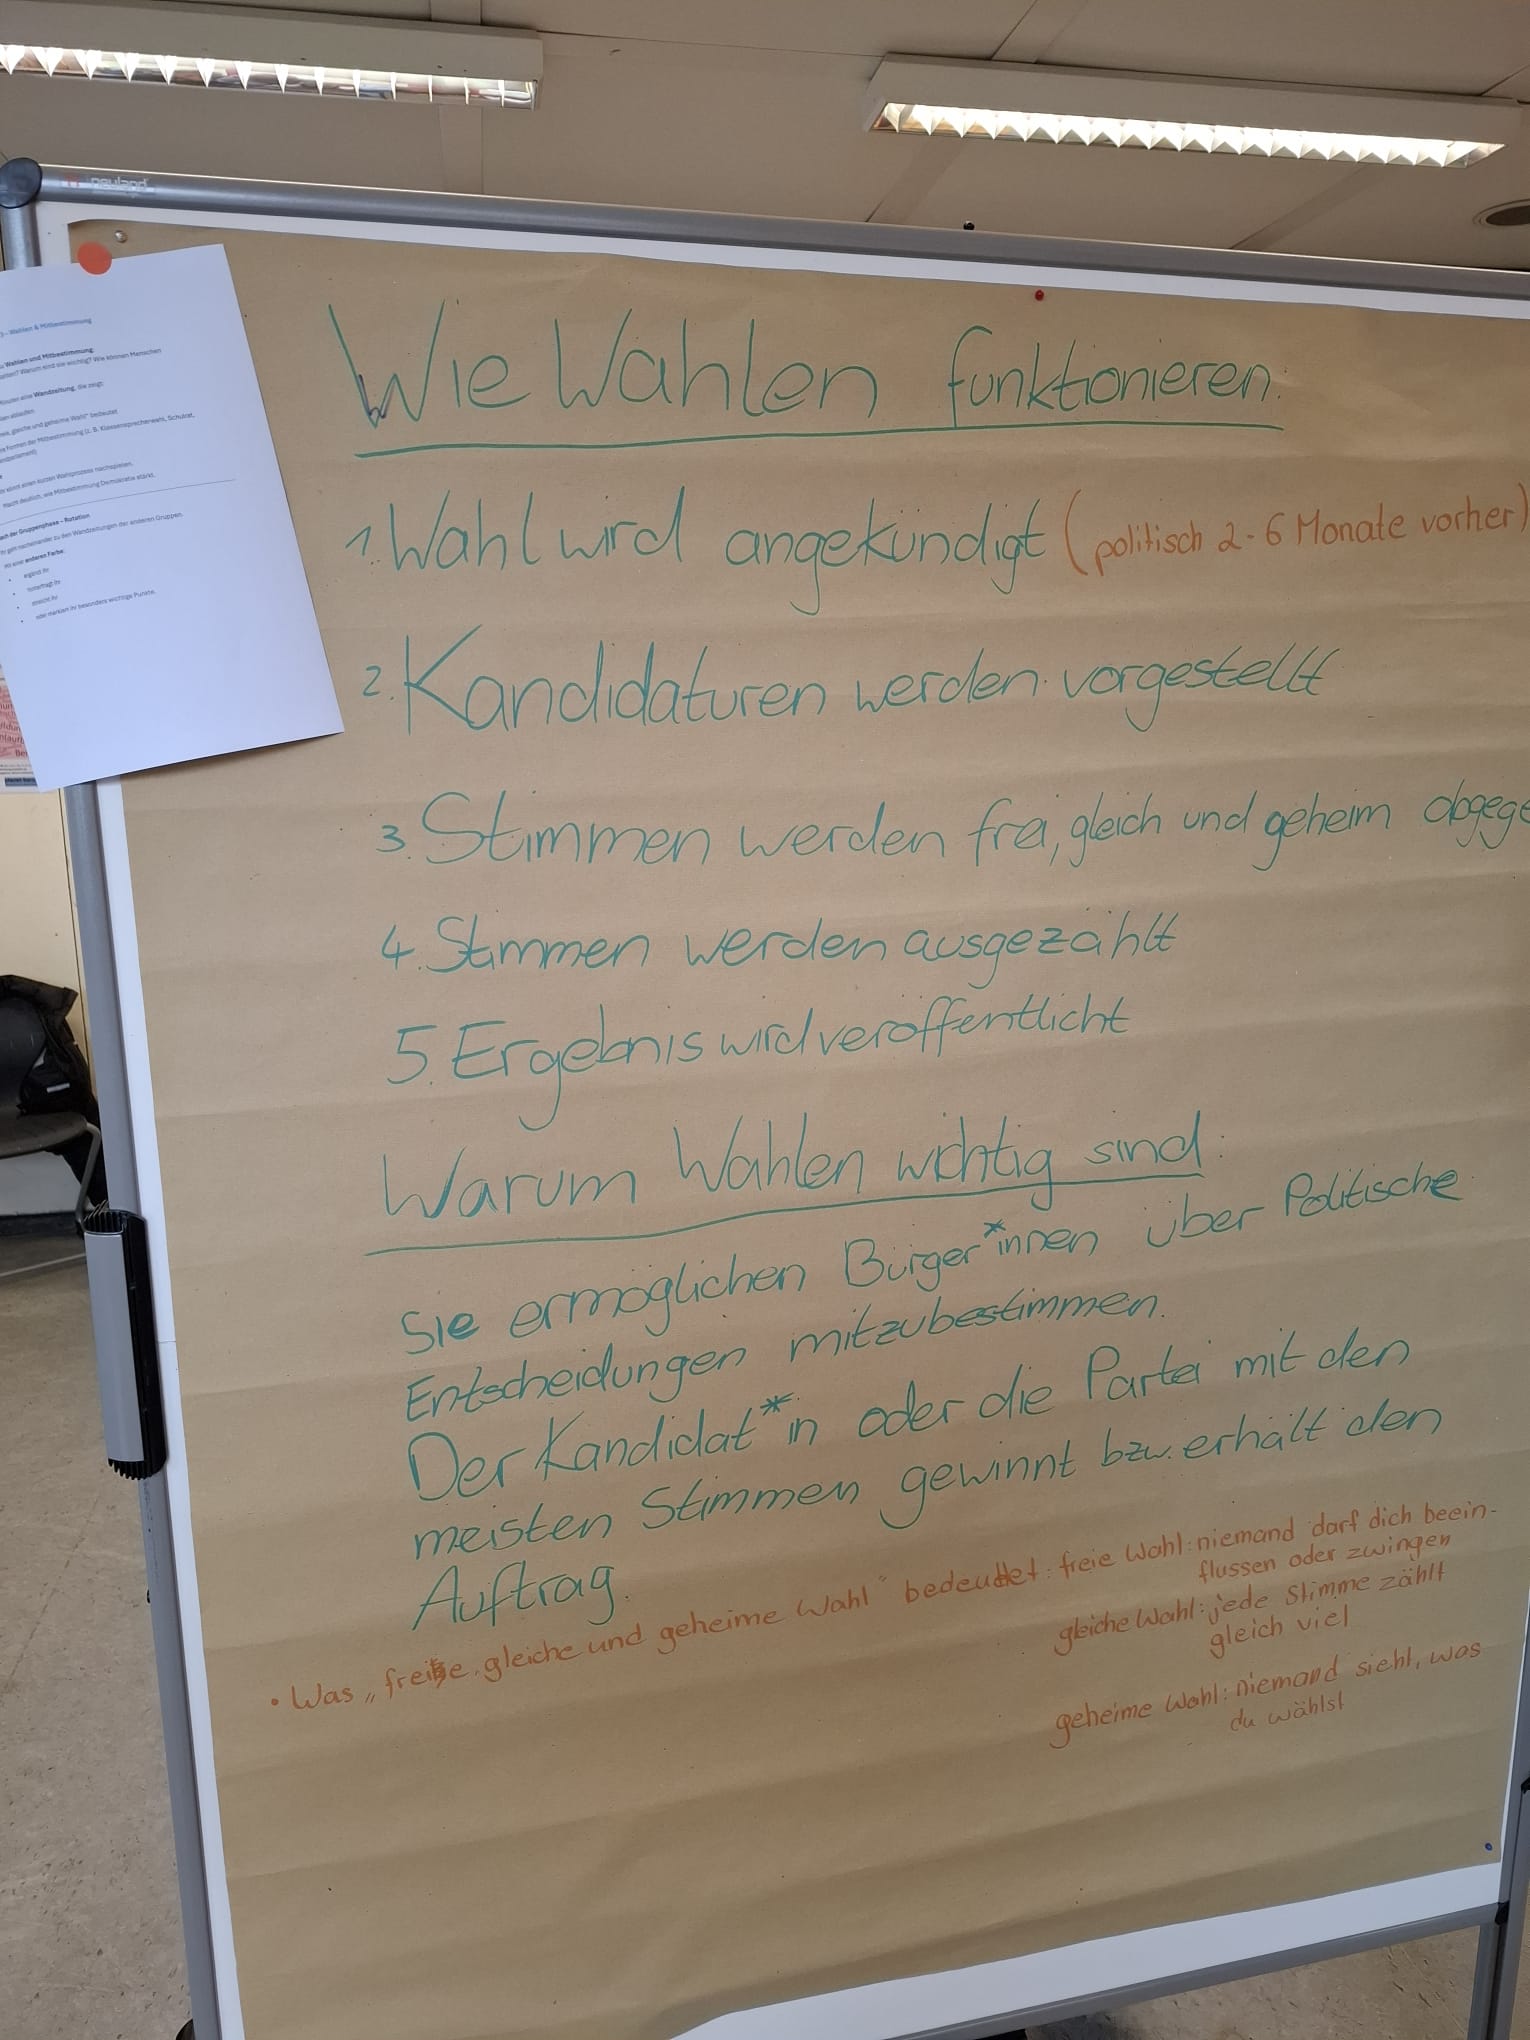 neuland
3 – Wahlen & Mitbestimmung
Wahlen und Mitbestimmung.
Warum sind sie wichtig? Wie können Menschen
eine Wandzeitung, die zeigt:
gleiche und geheime Wahl" bedeutet
Formen der Mitbestimmung (z. B. Klassensprecherwahl, Schulrat,
könnt einen kurzen Wahlprozess nachspielen.
Macht deutlich, wie Mitbestimmung Demokratie stärkt.
nach der Gruppenphase – Rotation
Ihr geht nacheinander zu den Wandzeitungen der anderen Gruppen.
Mit einer anderen Farbe:
• ergänzt ihr
• hinterfragt ihr
•
• oder markiert ihr besonders wichtige Punkte.
Wie Wahlen funktionieren:
1. Wahl wird angekündigt (politisch 2-6 Monate vorher)
2. Kandidaturen werden vorgestellt
3. Stimmen werden frei, gleich und geheim abgege
4. Stimmen werden ausgezählt
5. Ergebnis wird veröffentlicht
Warum Wahlen wichtig sind:
Sie ermöglichen Bürger*innen über Politische
Entscheidungen mitzubestimmen.
Der Kandidat*in oder die Partei mit den
meisten Stimmen gewinnt bzw. erhält den
Auftrag.
• Was „freie, gleiche und geheime Wahl" bedeutet: freie Wahl: niemand darf dich beein-
flussen oder zwingen
gleiche Wahl: jede Stimme zählt
gleich viel
geheime Wahl: niemand sieht, was
du wählst